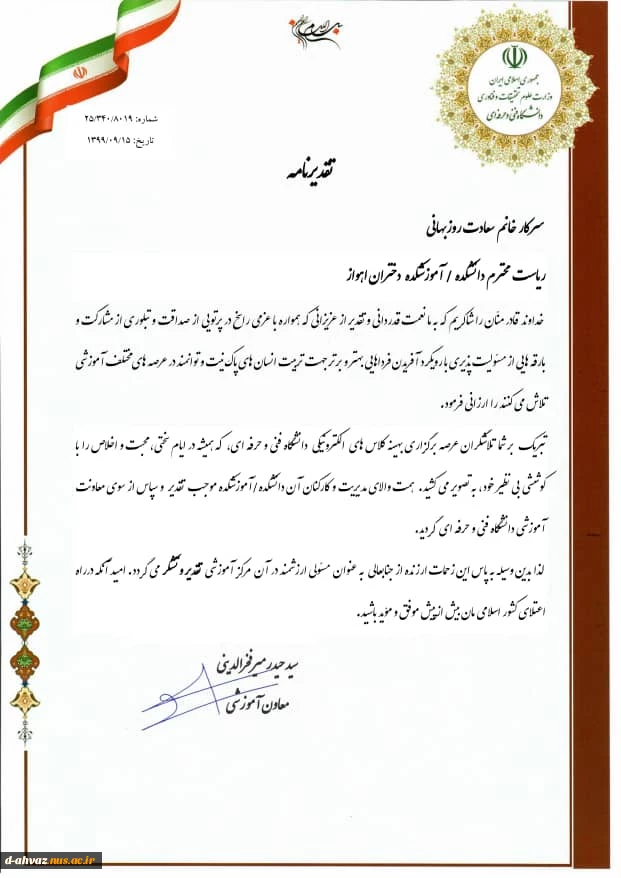 جمهوری اسلامی ایران
وزارت علوم تحقیقات و فناوری
دانشگاه فنی و حرفه ای
شماره: ۲۵/۳۴۰/۸۰۱۹
تاریخ: ۱۳۹۹/۰۹/۱۵
تقدیرنامه
سرکار خانم سعادت روزبهانی
ریاست محترم دانشکده / آموزشکده دختران اهواز
خداوند قادر منان را شاکریم که به ما نعمت قدردانی و تقدیر از عزیزانی که همواره با عزمی راسخ در پرتویی از صداقت و تبلوری از مشارکت و
بارقه هایی از مسئولیت پذیری با رویکرد آفریدن فرداهایی بهتر و برتر جهت تربیت انسان های پاک نیت و توانمند در عرصه های مختلف آموزشی
تلاش می کنند را ارزانی فرمود.
تبریک بر شما تلاشگران عرصه برگزاری بهینه کلاس های الکترونیکی دانشگاه فنی و حرفه ای، که همیشه در ایام سختی، محبت و اخلاص را با
کوششی بی نظیر خود، به تصویر می کشید. همت والای مدیریت و کارکنان آن دانشکده/آموزشکده موجب تقدیر و سپاس از سوی معاونت
آموزشی دانشگاه فنی و حرفه ای گردید.
لذا بدین وسیله به پاس این زحمات ارزنده از جنابعالی به عنوان مسئولی ارزشمند در آن مرکز آموزشی تقدیر و تشکر می گردد. امید آنکه در راه
اعتلای کشور اسلامی مان بیش از پیش موفق و مؤید باشید.
سید حیدر میرفخرالدینی
معاون آموزشی
d-ahvaz.nus.ac.ir